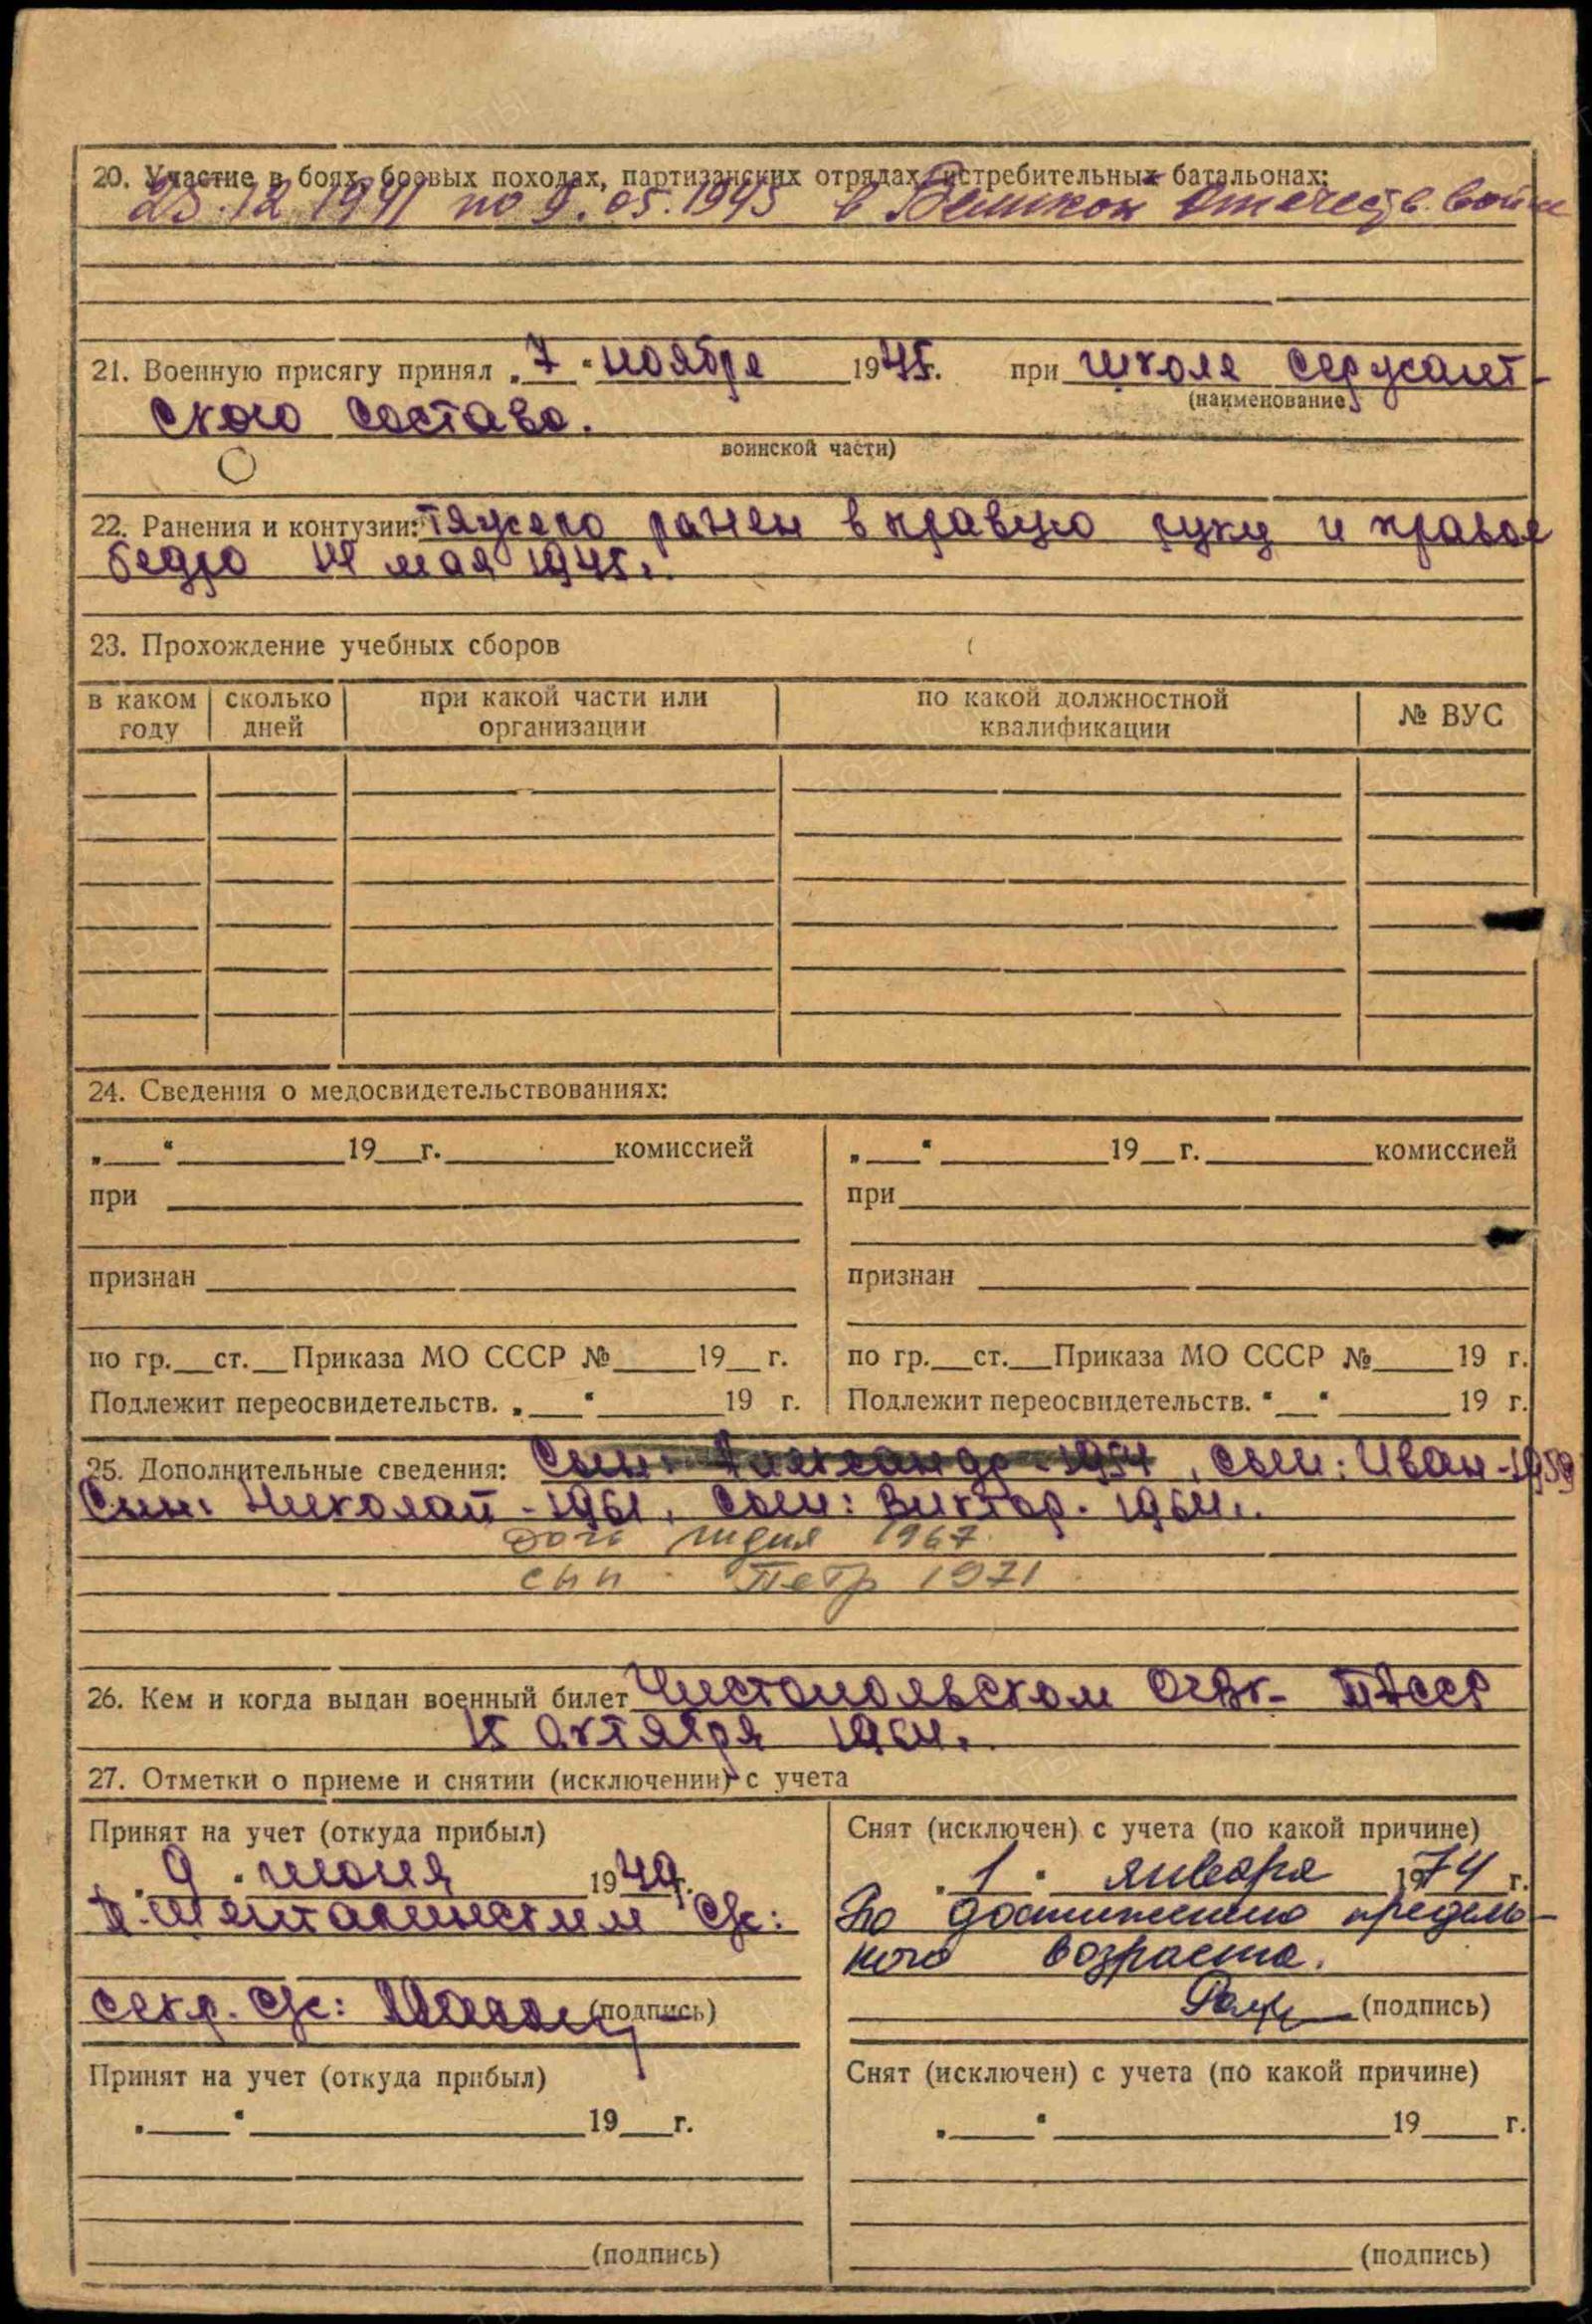 20. Участие в боях, боевых походах, партизанских отрядах, истребительных батальонах:
12 1941 по 9.05.1945 в Великой Отечеств. войне
21. Военную присягу принял „7“ ноября 1945г. при школе сержант-
(наименование
ского состава.
воинской части)
22. Ранения и контузии: тяжело ранен в правую руку и правое
бедро мая 1945г.
23. Прохождение учебных сборов
в каком году
сколько дней
при какой части или организации
по какой должностной квалификации
№ ВУС
24. Сведения о медосвидетельствованиях:
„__“ 19__г. комиссией
„__“ 19__г. комиссией
при
при
признан
признан
по гр.__ст.__Приказа МО СССР №__19__г.
по гр.__ст.__Приказа МО СССР №__19 г.
Подлежит переосвидетельств. „__“ 19 г.
Подлежит переосвидетельств. “__“ 19 г.
25. Дополнительные сведения: Сын: Александр - 1954, сын: Иван - 1959
Сын: Николай - 1961, сын: Виктор - 1964г.
дочь Лидия 1967
сын Петр 1971
26. Кем и когда выдан военный билет Чистопольском ОГВК ТАССР
15 октября 1964г.
27. Отметки о приеме и снятии (исключении) с учета
Принят на учет (откуда прибыл)
Снят (исключен) с учета (по какой причине)
„9“ 1949г.
„1“ января 1974 г.
с/с:
По достижению предель-
ного возраста.
секр. с/с: (подпись)
(подпись)
Принят на учет (откуда прибыл)
Снят (исключен) с учета (по какой причине)
„__“ 19__г.
„__“ 19__г.
(подпись)
(подпись)